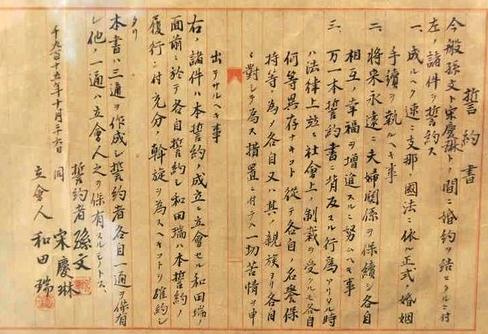 誓約書
今般孫文ト宋慶琳トノ間ニ婚約ヲ結ヒタルニ付
左ノ諸件ヲ誓約ス
一、成ルヘク速ニ支那ノ國法ニ依ル正式ノ婚姻
手續ヲ執ルヘキ事
二、將來永遠ニ夫婦関係ヲ保續シ各自
相互ノ幸福ヲ増進スルニ努ムヘキ事
三、万一本誓約書ニ背反スル行為アリタル時
ハ法律上並ニ社會上ノ制裁ヲ受クルモ各自
何等異存ナキコト從テ各自ノ名譽保
持等ノ為メ各自又ハ其ノ親族ヨリ各自
ニ對シテ為ス措置ニ付テハ一切苦情ヲ申
出テサルヘキ事
右ノ諸件ハ本誓約ノ成立ニ立會セル和田瑞ノ
面前ニ於テ各自誓約シ和田瑞ハ本誓約ノ
履行ニ付充分ノ斡旋ヲ為スヘキコトヲ確約シ
タリ
本書ハ三通ヲ作成シ誓約者各自一通ヲ保有
シ他ノ一通ハ立會人之ヲ保有スルモノトス
誓約者 孫文
同 宋慶琳
立會人 和田瑞
千九百十五年十月二十六日